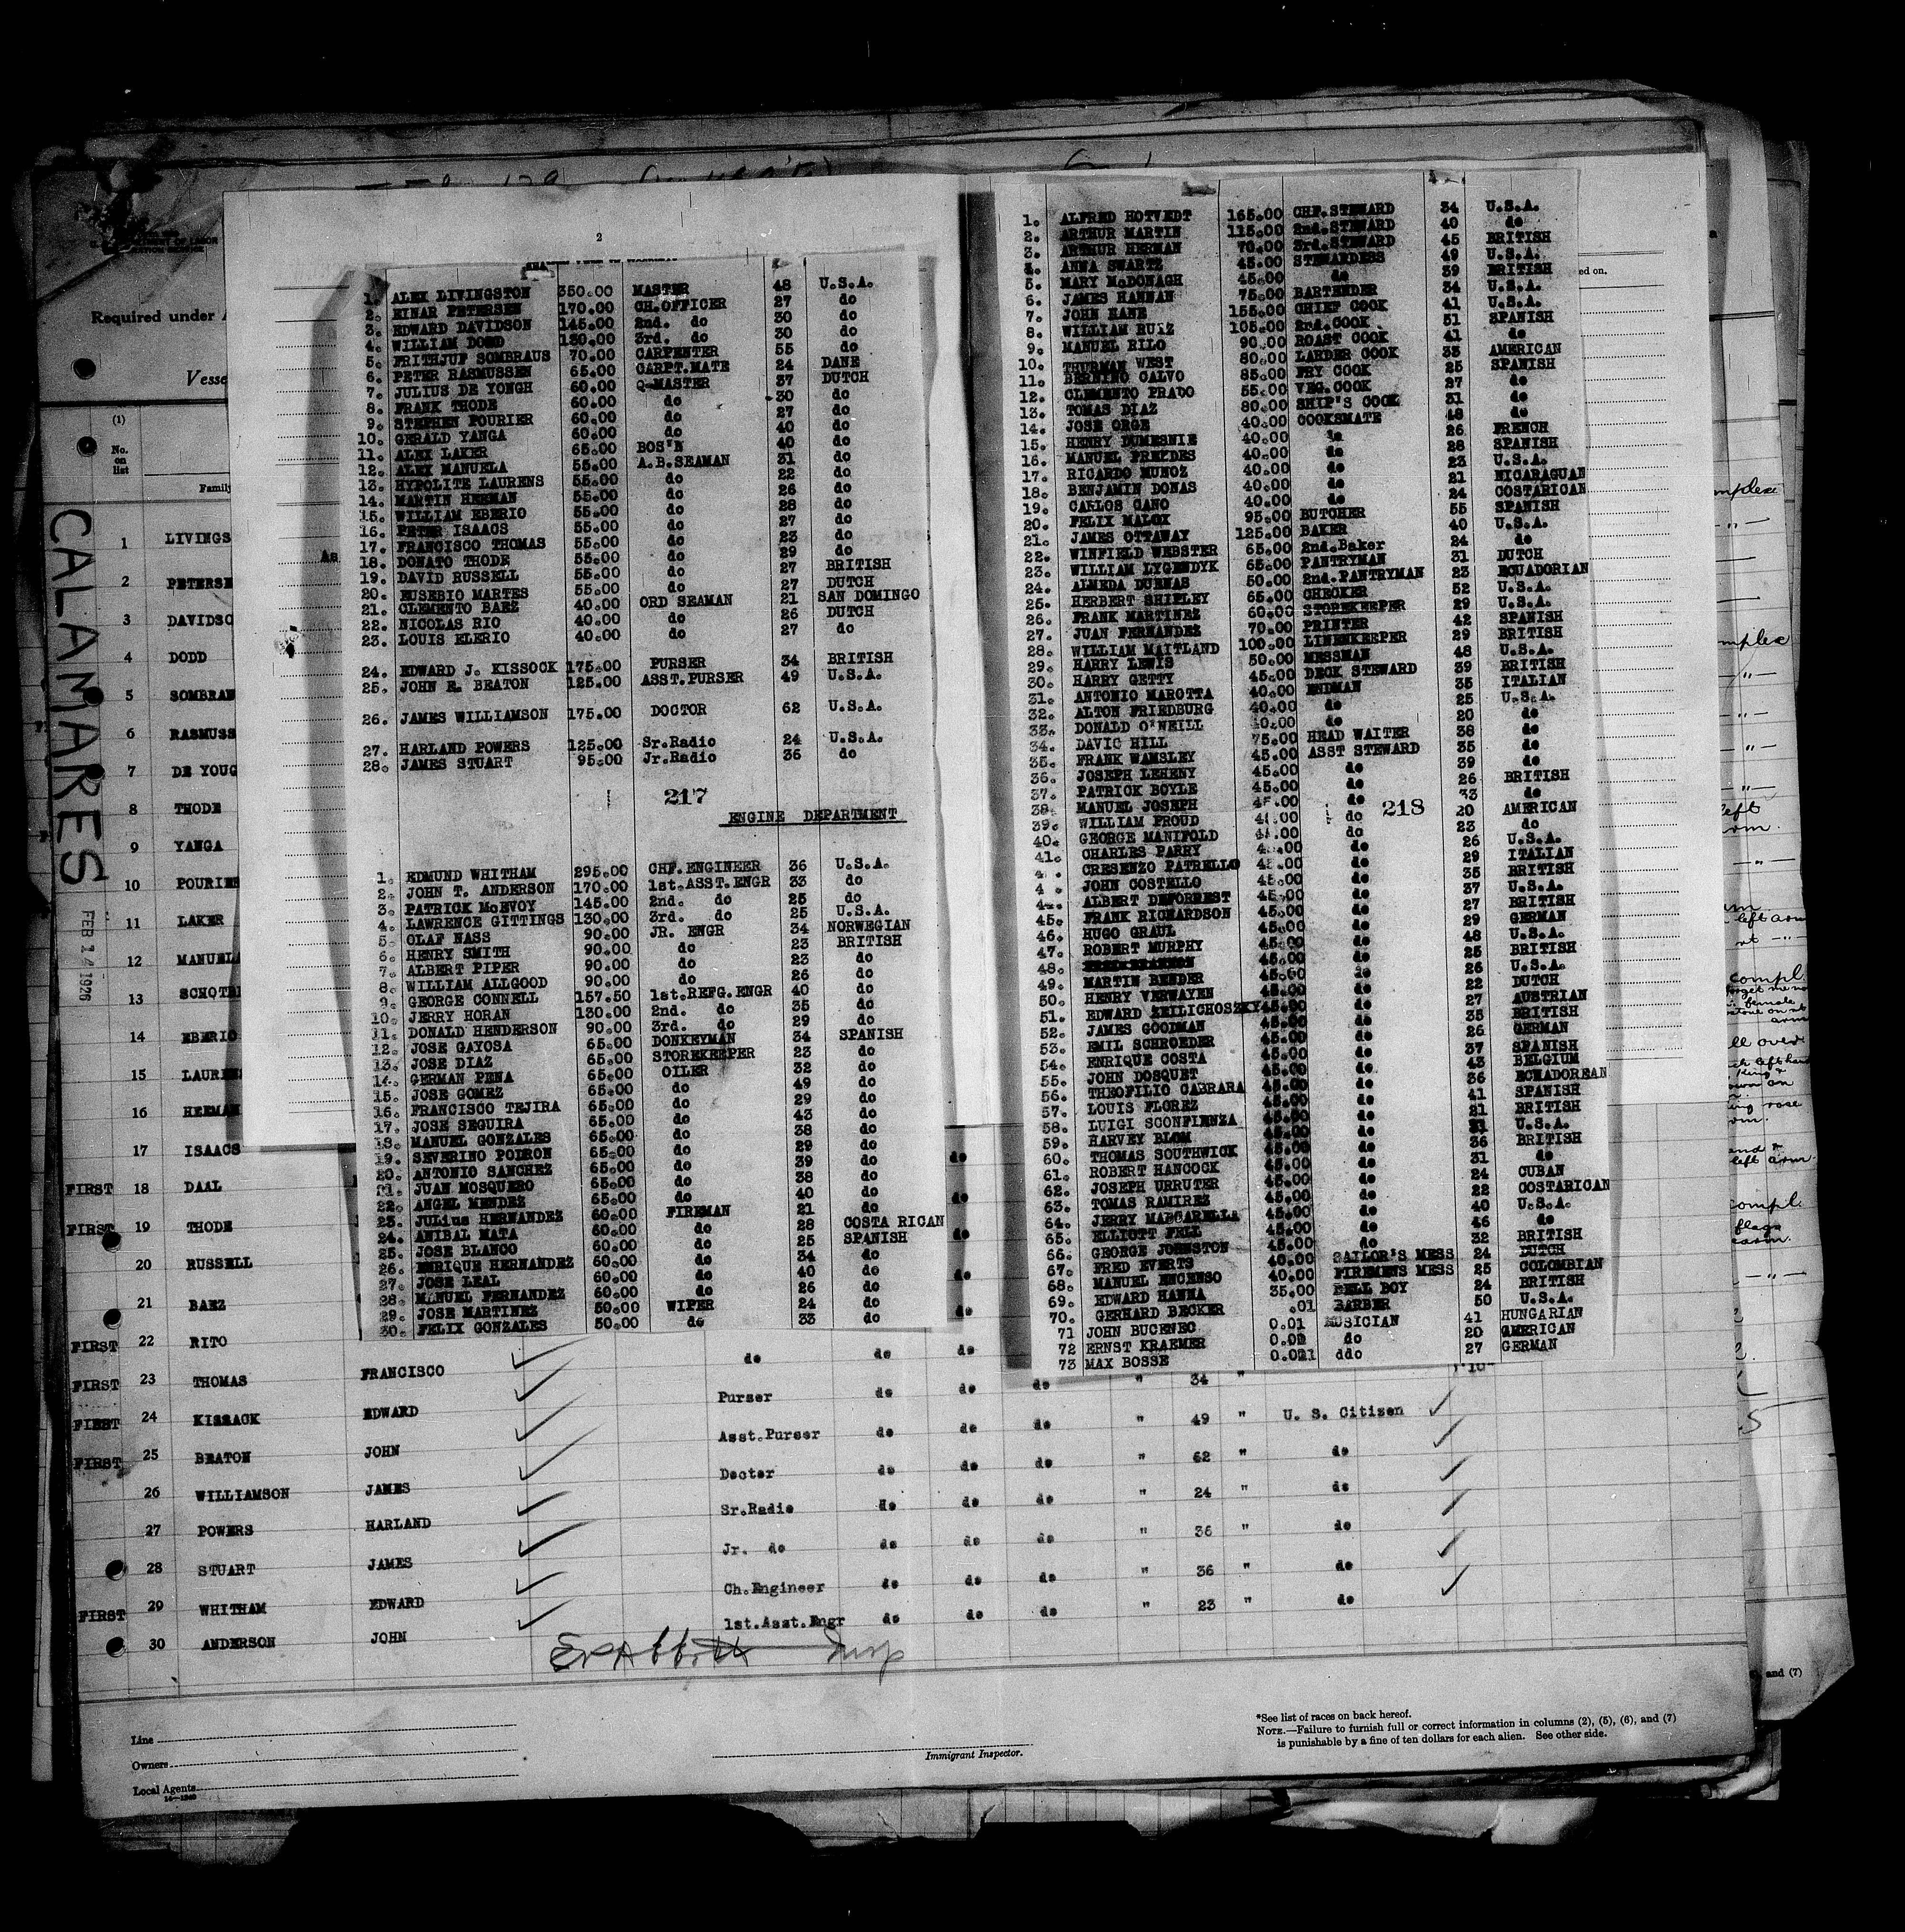 2
1. ALEX LIVINGSTON 350.00 MASTER 48 U.S.A.
2. EINAR PETERSEN 170.00 CH.OFFICER 27 do
3. EDWARD DAVIDSON 145.00 2nd. do 30 do
4. WILLIAM DODD 130.00 3rd. do 30 do
5. FRITHJUF SOMBRAUS 70.00 CARPENTER 55 do
6. PETER RASMUSSEN 65.00 CARPT.MATE 24 DANE
7. JULIUS DE YONGH 60.00 Q-MASTER 37 DUTCH
8. FRANK THODE 60.00 do 30 do
9. STEPHEN POURIER 60.00 do 27 do
10. GERALD YANGA 60.00 do 40 do
11. ALEX LAKER 65.00 BOS'N 40 do
12. ALEX MANUELA 55.00 A.B.SEAMAN 31 do
13. HYPOLITE LAURENS 55.00 do 22 do
14. MARTIN HERMAN 55.00 do 26 do
15. WILLIAM EBERIO 55.00 do 28 do
16. PETER ISAACS 55.00 do 27 do
17. FRANCISCO THOMAS 55.00 do 23 do
18. DONATO THODE 55.00 do 29 do
19. DAVID RUSSELL 55.00 do 27 BRITISH
20. EUSEBIO MARTES 55.00 do 27 DUTCH
21. CLEMENTO BAEZ 40.00 ORD SEAMAN 21 SAN DOMINGO
22. NICOLAS RIO 40.00 do 26 DUTCH
23. LOUIS ELERIO 40.00 do 27 do
24. EDWARD J. KISSOCK 175.00 PURSER 34 BRITISH
25. JOHN E. BEATON 125.00 ASST.PURSER 49 U.S.A.
26. JAMES WILLIAMSON 175.00 DOCTOR 62 U.S.A.
27. HARLAND POWERS 125.00 Sr.Radio 24 U.S.A.
28. JAMES STUART 95.00 Jr.Radio 36 do
217
ENGINE DEPARTMENT
1. EDMUND WHITHAM 295.00 CHF.ENGINEER 36 U.S.A.
2. JOHN T. ANDERSON 170.00 1st.ASST.ENGR 33 do
3. PATRICK McEVOY 145.00 2nd. do 25 do
4. LAWRENCE GITTINGS 130.00 3rd. do 25 U.S.A.
5. OLAF NASS 90.00 JR. ENGR 34 NORWEGIAN
6. HENRY SMITH 90.00 do 23 BRITISH
7. ALBERT PIPER 90.00 do 23 do
8. WILLIAM ALLGOOD 90.00 do 26 do
9. GEORGE CONNELL 157.50 1st.REFG.ENGR 40 do
10. JERRY HORAN 130.00 2nd. do 35 do
11. DONALD HENDERSON 90.00 3rd. do 29 do
12. JOSE GAYOSA 65.00 DONKEYMAN 34 SPANISH
13. JOSE DIAZ 65.00 STOREKEEPER 23 do
14. GERMAN PENA 65.00 OILER 32 do
15. JOSE GOMEZ 65.00 do 49 do
16. FRANCISCO TEJIRA 65.00 do 29 do
17. JOSE SEGUIRA 65.00 do 43 do
18. MANUEL GONZALES 65.00 do 38 do
19. SEVERINO POIRON 65.00 do 29 do
20. ANTONIO SANCHEZ 65.00 do 39 do
21. JUAN MOSQUERO 65.00 do 38 do
22. ANGEL MENDEZ 65.00 do 40 do
23. JULius HERNANDEZ 60.00 FIREMAN 21 do
24. ANIBAL MATA 60.00 do 28 COSTA RICAN
25. JOSE BLANCO 60.00 do 25 SPANISH
26. ENRIQUE HERNANDEZ 60.00 do 34 do
27. JOSE LEAL 60.00 do 40 do
28. MANUEL FERNANDEZ 60.00 do 26 do
29. JOSE MARTINEZ 50.00 WIPER 24 do
30. FELIX GONZALES 50.00 do 33 do
1. ALFRED HOTVEDT 165.00 CHF.STEWARD 34 U.S.A.
2. ARTHUR MARTIN 115.00 2nd.STEWARD 40 do
3. ARTHUR HERMAN 70.00 3rd.STEWARD 45 BRITISH
4. ANNA SWARTZ 45.00 STEWARDESS 49 U.S.A.
5. MARY McDONAGH 45.00 do 39 BRITISH
6. JAMES HANNAN 75.00 BARTENDER 34 U.S.A.
7. JOHN KANE 155.00 CHIEF COOK 41 U.S.A.
8. WILLIAM RUIZ 105.00 2nd.COOK 51 SPANISH
9. MANUEL RILO 90.00 ROAST COOK 41 do
10. THURMAN WEST 80.00 LARDER COOK 33 AMERICAN
11. BERNINO CALVO 85.00 FRY COOK 25 SPANISH
12. CLEMENTO PRADO 55.00 VEG.COOK 27 do
13. TOMAS DIAZ 80.00 SHIP'S COOK 31 do
14. JOSE ORGE 40.00 COOKSMATE 48 do
15. HENRY DUMESNIE 40.00 do 26 FRENCH
16. MANUEL PREEDES 40.00 do 28 SPANISH
17. RICARDO MUNOZ 40.00 do 23 U.S.A.
18. BENJAMIN DONAS 40.00 do 21 NICARAGUAN
19. CARLOS CANO 40.00 do 24 COSTARICAN
20. FELIX MALOX 95.00 BUTCHER 55 SPANISH
21. JAMES OTTAWAY 125.00 BAKER 40 U.S.A.
22. WINFIELD WEBSTER 65.00 2nd.Baker 24 do
23. WILLIAM LYGENDYK 65.00 PANTRYMAN 31 DUTCH
24. ALMEDA DUENAS 50.00 2nd.PANTRYMAN 23 ECUADORIAN
25. HERBERT SHIPLEY 65.00 CHECKER 52 U.S.A.
26. FRANK MARTINEZ 60.00 STOREKEEPER 29 U.S.A.
27. JUAN FERNANDEZ 70.00 PRINTER 42 SPANISH
28. WILLIAM MAITLAND 100.00 LINENKEEPER 29 BRITISH
29. HARRY LEWIS 50.00 MESSMAN 48 U.S.A.
30. HARRY GETTY 45.00 DECK STEWARD 39 BRITISH
31. ANTONIO MAROTTA 40.00 ENDMAN 35 ITALIAN
32. ALTON FRIEDBURG 40.00 do 25 U.S.A.
33. DONALD O'NEILL 40.00 do 20 do
34. DAVIC HILL 75.00 HEAD WAITER 38 do
35. FRANK WAMSLEY 45.00 ASST STEWARD 35 do
36. JOSEPH LEHENY 45.00 do 39 do
37. PATRICK BOYLE 45.00 do 26 BRITISH
38. MANUEL JOSEPH 45.00 do 33 do
218
39. WILLIAM PROUD 45.00 do 20 AMERICAN
40. GEORGE MANIFOLD 45.00 do 23 do
41. CHARLES PARRY 45.00 do 26 U.S.A.
4 . CRESENZO PATRELLO 45.00 do 29 ITALIAN
4 . JOHN COSTELLO 45.00 do 35 BRITISH
44. ALBERT DEFORREST 45.00 do 37 U.S.A.
45. FRANK RICHARDSON 45.00 do 27 BRITISH
46. HUGO GRAUL 45.00 do 29 GERMAN
47. ROBERT MURPHY 45.00 do 48 U.S.A.
48. 45.00 do 25 BRITISH
49. MARTIN BENDER 45.00 do 26 U.S.A.
50. HENRY VERWAYEN 45.00 do 22 DUTCH
51. EDWARD ZEILICHOSZKY 45.00 do 27 AUSTRIAN
52. JAMES GOODMAN 45.00 do 35 BRITISH
53. EMIL SCHROEDER 45.00 do 26 GERMAN
54. ENRIQUE COSTA 45.00 do 37 SPANISH
55. JOHN DOSQUET 45.00 do 43 BELGIUM
56. THEOFILIO CABRARA 45.00 do 36 ECUADOREAN
57. LOUIS FLOREZ 45.00 do 41 SPANISH
58. LUIGI SCONFIENZA 45.00 do 21 BRITISH
59. HARVEY BLOM 45.00 do 31 U.S.A.
60. THOMAS SOUTHWICK 45.00 do 36 BRITISH
61. ROBERT HANCOCK 45.00 do 31 do
62. JOSEPH URRUTER 45.00 do 24 CUBAN
63. TOMAS RAMIREZ 45.00 do 22 COSTARICAN
64. JERRY MASCARELLA 45.00 do 40 U.S.A.
65. ELLIOTT FELL 45.00 do 46 do
66. GEORGE JOHNSTON 45.00 do 32 BRITISH
67. FRED EVERTS 40.00 SAILOR'S MESS 24 DUTCH
68. MANUEL ENCENSO 40.00 FIREMENS MESS 25 COLOMBIAN
69. EDWARD HANNA 35.00 BELL BOY 24 BRITISH
70. GERHARD BECKER .01 BARBER 50 U.S.A.
71 JOHN BUCENEC 0.01 MUSICIAN 41 HUNGARIAN
72 ERNST KRAEMER 0.01 do 20 AMERICAN
73 MAX BOSSE 0.01 ddo 27 GERMAN
Required under
Vesse
(1)
No. on list
Family
ed on.
CALAMARES
FEB 14 1926
1 LIVINGS
As
2 PETERSE
3 DAVIDSO
4 DODD
5 SOMBRAN
6 RASMUSS
7 DE YOUG
8 THODE
9 YANGA
10 POURIER
11 LAKER
12 MANUELA
13 SCHOTBO
14 EBERIO
15 LAURENS
16 HERMAN
17 ISAACS do
FIRST 18 DAAL do
FIRST 19 THODE do
20 RUSSELL do
21 BAEZ do
FIRST 22 RITO do do do
FIRST 23 THOMAS FRANCISCO Purser do do do " 34 "
FIRST 24 KISSACK EDWARD Asst.Purser do do do " 49 " U. S. Citizen
FIRST 25 BEATON JOHN Docter do do do " 62 " do
26 WILLIAMSON JAMES Sr.Radio do do do " 24 " do
27 POWERS HARLAND Jr. do do do do " 36 " do
28 STUART JAMES Ch.Engineer do do do " 36 " do
FIRST 29 WHITHAM EDWARD 1st.Asst.Engr do do do " 23 " do
30 ANDERSON JOHN
Line
Owners
Local Agents
Immigrant Inspector.
*See list of races on back hereof.
NOTE.—Failure to furnish full or correct information in columns (2), (5), (6), and (7)
is punishable by a fine of ten dollars for each alien. See other side.
and (7)